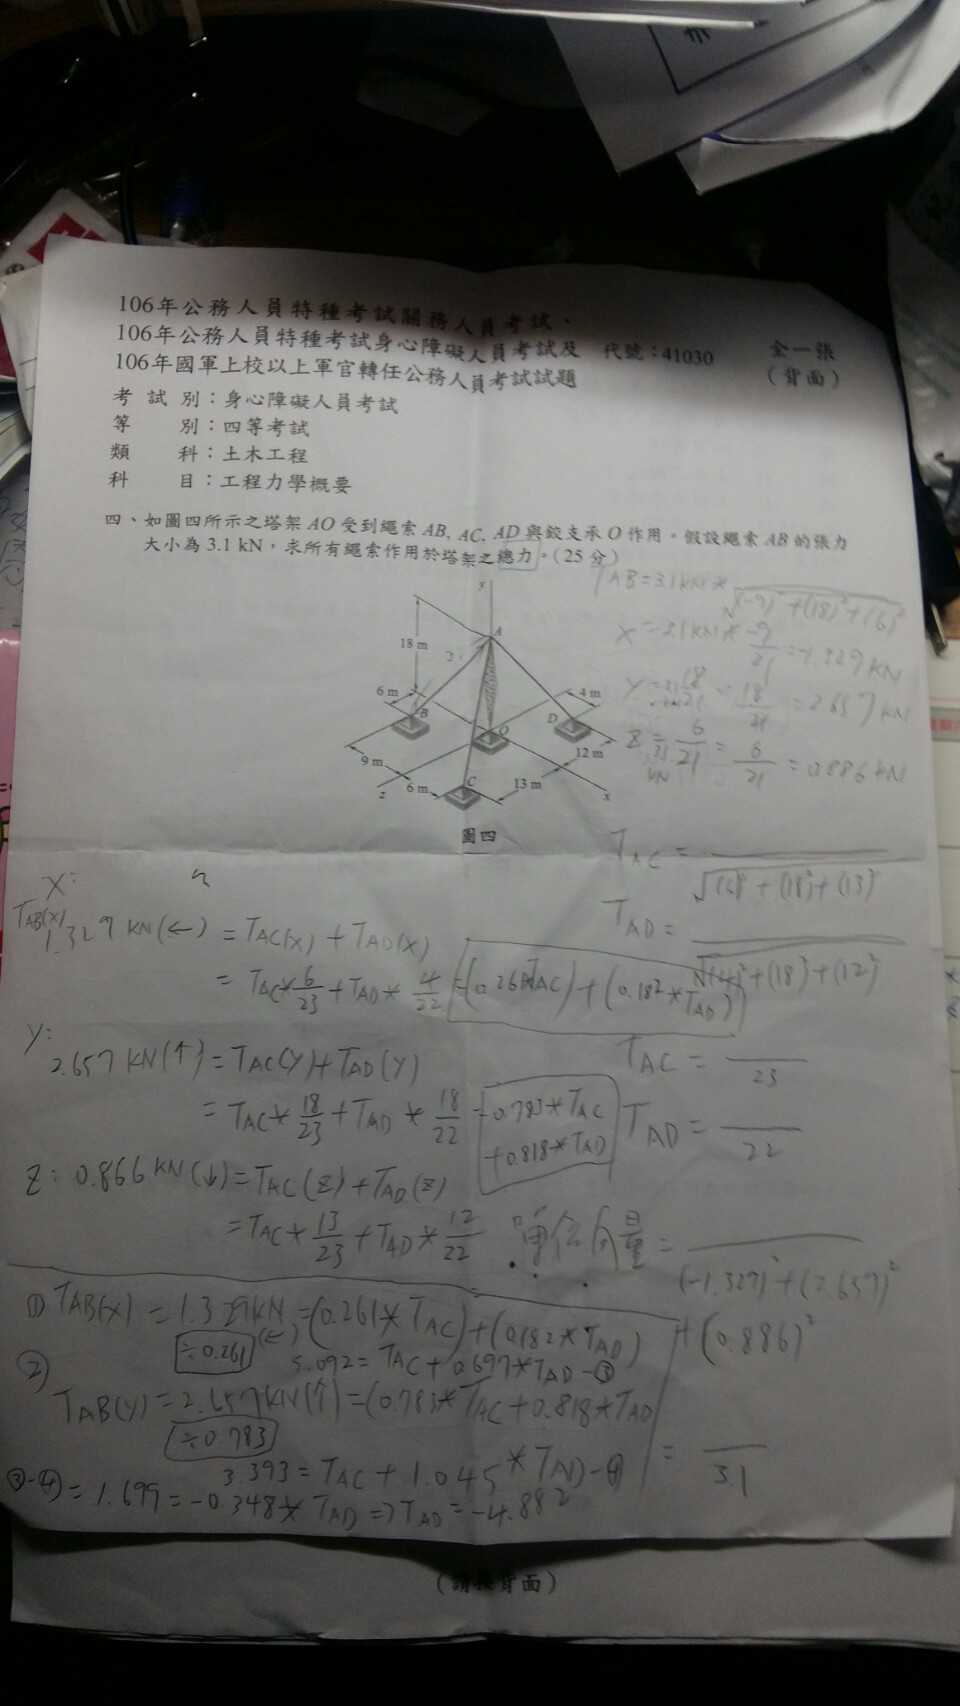 106年公務人員特種考試關務人員考試、
106年公務人員特種考試身心障礙人員考試及 代號：41030 全一張
106年國軍上校以上軍官轉任公務人員考試試題 （背面）
考試別：身心障礙人員考試
等別：四等考試
類科：土木工程
科目：工程力學概要
四、如圖四所示之塔架 AO 受到繩索 AB, AC, AD 與鉸支承 O 作用。假設繩索 AB 的張力
大小為 3.1 kN，求所有繩索作用於塔架之總力。（25 分）
TAB=3.1KN* √(-9)²+(18)²+(6)²
X=3.1KN*-9/21=-1.329KN
18/21=18/21=2.657KN
Z=3.1KN 6/21=6/21=0.886KN
y
A
18 m
6 m
B
4 m
D
O
9 m
12 m
z
6 m
C
13 m
x
圖四
TAC= √(6)²+(18)²+(13)²
TAD= √(4)²+(18)²+(12)²
TAC= /23
TAD= /22
X:
TAB(X) 1.329KN(←)=TAC(X)+TAD(X)
=TAC*6/23+TAD*4/22=(0.261*TAC)+(0.182*TAD)
Y:
2.657KN(↑)=TAC(Y)+TAD(Y)
=TAC*18/23+TAD*18/22=0.783*TAC
+0.818*TAD
Z: 0.866KN(↓)=TAC(Z)+TAD(Z)
=TAC*13/23+TAD*12/22
單位向量= /(-1.327)²+(2.657)²
+(0.886)²
= /3.1
① TAB(X)=1.329KN=(0.261*TAC)+(0.182*TAD)
÷0.261 (←) 5.092=TAC+0.697*TAD-③
②
TAB(Y)=2.657KN(↑)=(0.783*TAC+0.818*TAD
÷0.783
3.393=TAC+1.045*TAD-④
③-④=1.699=-0.348*TAD=>TAD=-4.882
（請接背面）